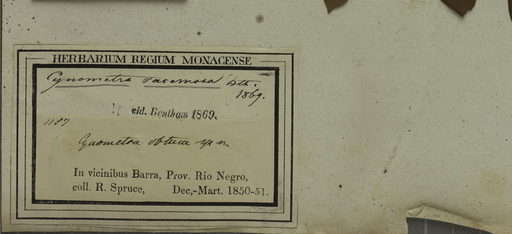 HERBARIUM REGIUM MONACENSE
Cynometra racemosa Bth.
1869.
vid. Bentham 1869.
1187
Cynometra obtusa sp n
In vicinibus Barra, Prov. Rio Negro,
coll. R. Spruce, Dec,-Mart. 1850-51.